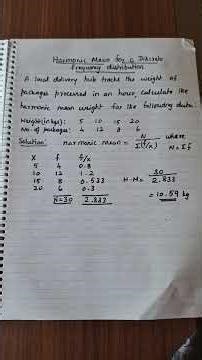 Harmonic Mean for a Discrete
frequency distribution
A local delivery hub tracks the weight of
packages processed in an hour, calculate the
harmonic mean weight for the following data.
Weight (in kgs): 5 10 15 20
No. of packages: 4 12 8 6
Solution: Harmonic mean = N / Σ(f/x) where N = Σf
X f f/x
5 4 0.8
10 12 1.2
15 8 0.533
20 6 0.3
N=30 2.833
H.M = 30 / 2.833
= 10.59 kg